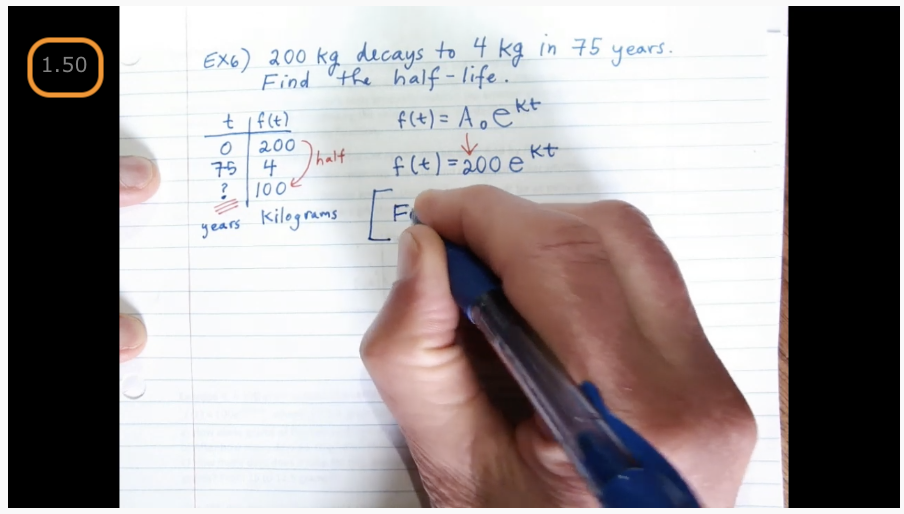 1.50
EX6) 200 kg decays to 4 kg in 75 years.
Find the half-life.
t f(t)
0 200
75 4
? 100
half
years Kilograms
f(t) = A₀e^kt
f(t) = 200 e^kt
[F